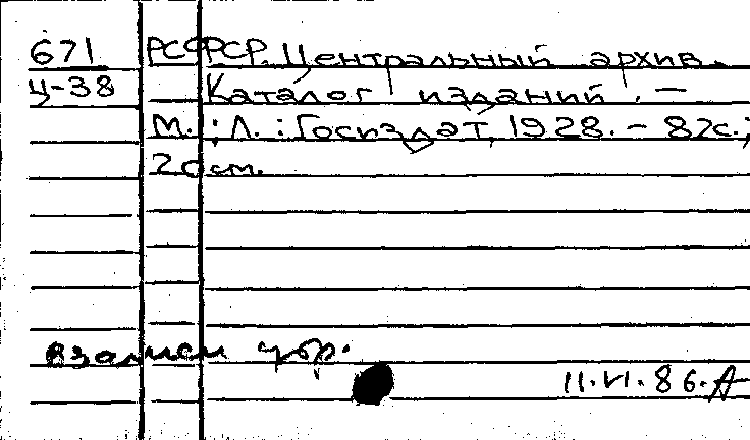 671 РСФСР. Центральный архив.
Ц-38 Каталог изданий. —
М.; Л.: Госиздат, 1928. - 87с.;
20см.
взамен утр.
11.VI.86.